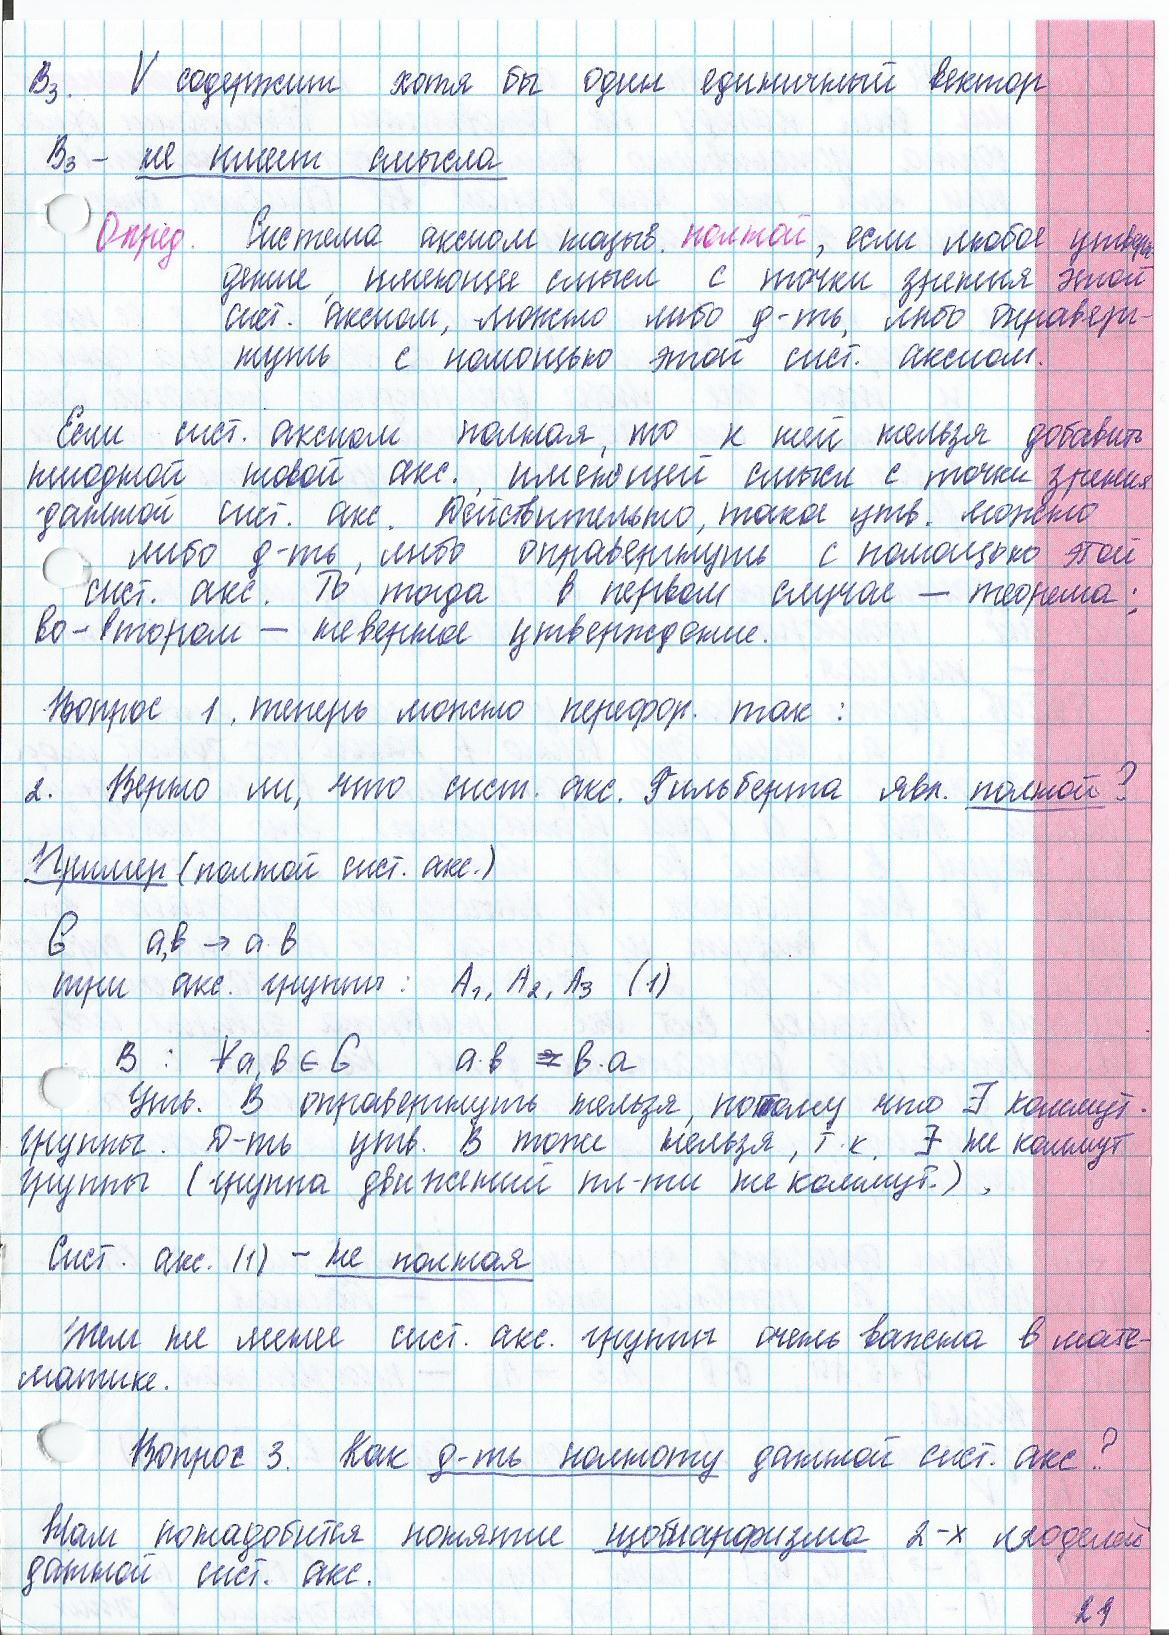 В₃. V содержит хотя бы один единичный вектор
В₃ – не имеет смысла
Опред. Система аксиом назыв. полной, если любое утверж-
дение, имеющее смысл с точки зрения этой
сист. аксиом, можно либо д-ть, либо опроверг-
нуть с помощью этой сист. аксиом.
Если сист. аксиом полная, то к ней нельзя добавить
ниодной новой акс., имеющей смысл с точки зрения
данной сист. акс. Действительно, такое утв. можно
либо д-ть, либо опровергнуть с помощью этой
сист. акс. То тогда в первом случае — теорема;
во-втором — неверное утверждение.
Вопрос 1. теперь можно перефор. так:
2. Верно ли, что сист. акс. Гильберта явл. полной?
Пример (полной сист. акс.)
G a,b → a·b
три акс. группы: А₁, А₂, А₃ (1)
В: ∀a,b ∈ G a·b = b·a
Утв. В опровергнуть нельзя, потому что ∃ коммут.
группы. Д-ть утв. В тоже нельзя, т.к. ∃ не коммут
группы (группа движений пл-ти не коммут.).
Сист. акс. (1) – не полная
Тем не менее сист. акс. группы очень важна в мате-
матике.
Вопрос 3. Как д-ть полноту данной сист. акс?
Нам понадобится понятие изоморфизма 2-х моделей
данной сист. акс.
21